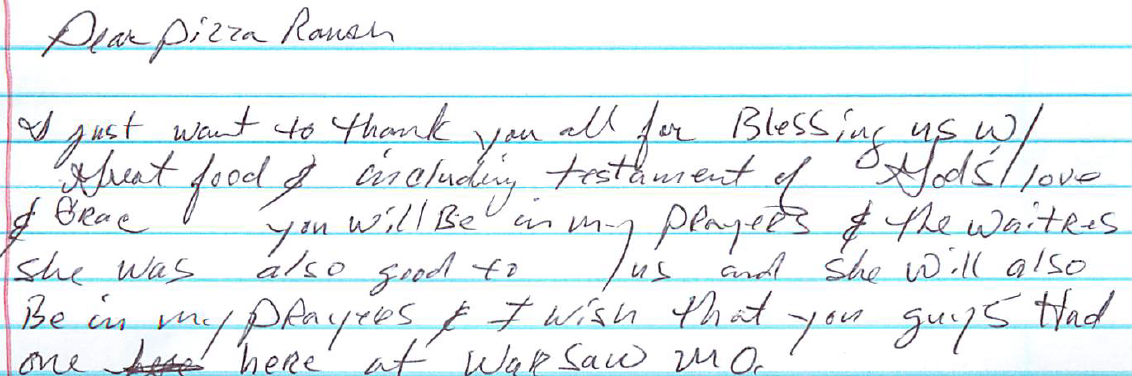 Dear Pizza Ranch
I just want to thank you all for Blessing us w/
Great food & including testament of God's love
& Grac you will Be in my prayers & the waitres
she was also good to us and she will also
Be in my prayers & I wish that you guys Had
one here at Warsaw MO.